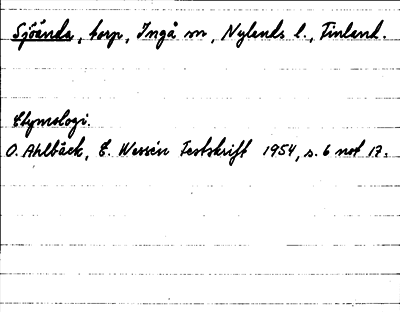 Sjöända, torp, Ingå sn, Nylands l., Finland.
Etymologi.
O. Ahlbäck, E. Wessén Festskrift 1954, s. 6 not 17.